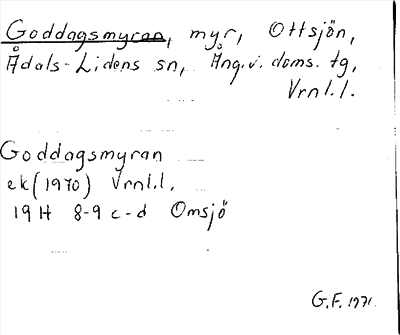 Goddagsmyran, myr, Ottsjön,
Ådals-Lidens sn, Ång.v. doms. tg,
Vrnl.l.
Goddagsmyran
ek (1970) Vrnl.l.
19H 8-9 c-d Omsjö
G.F. 1971.